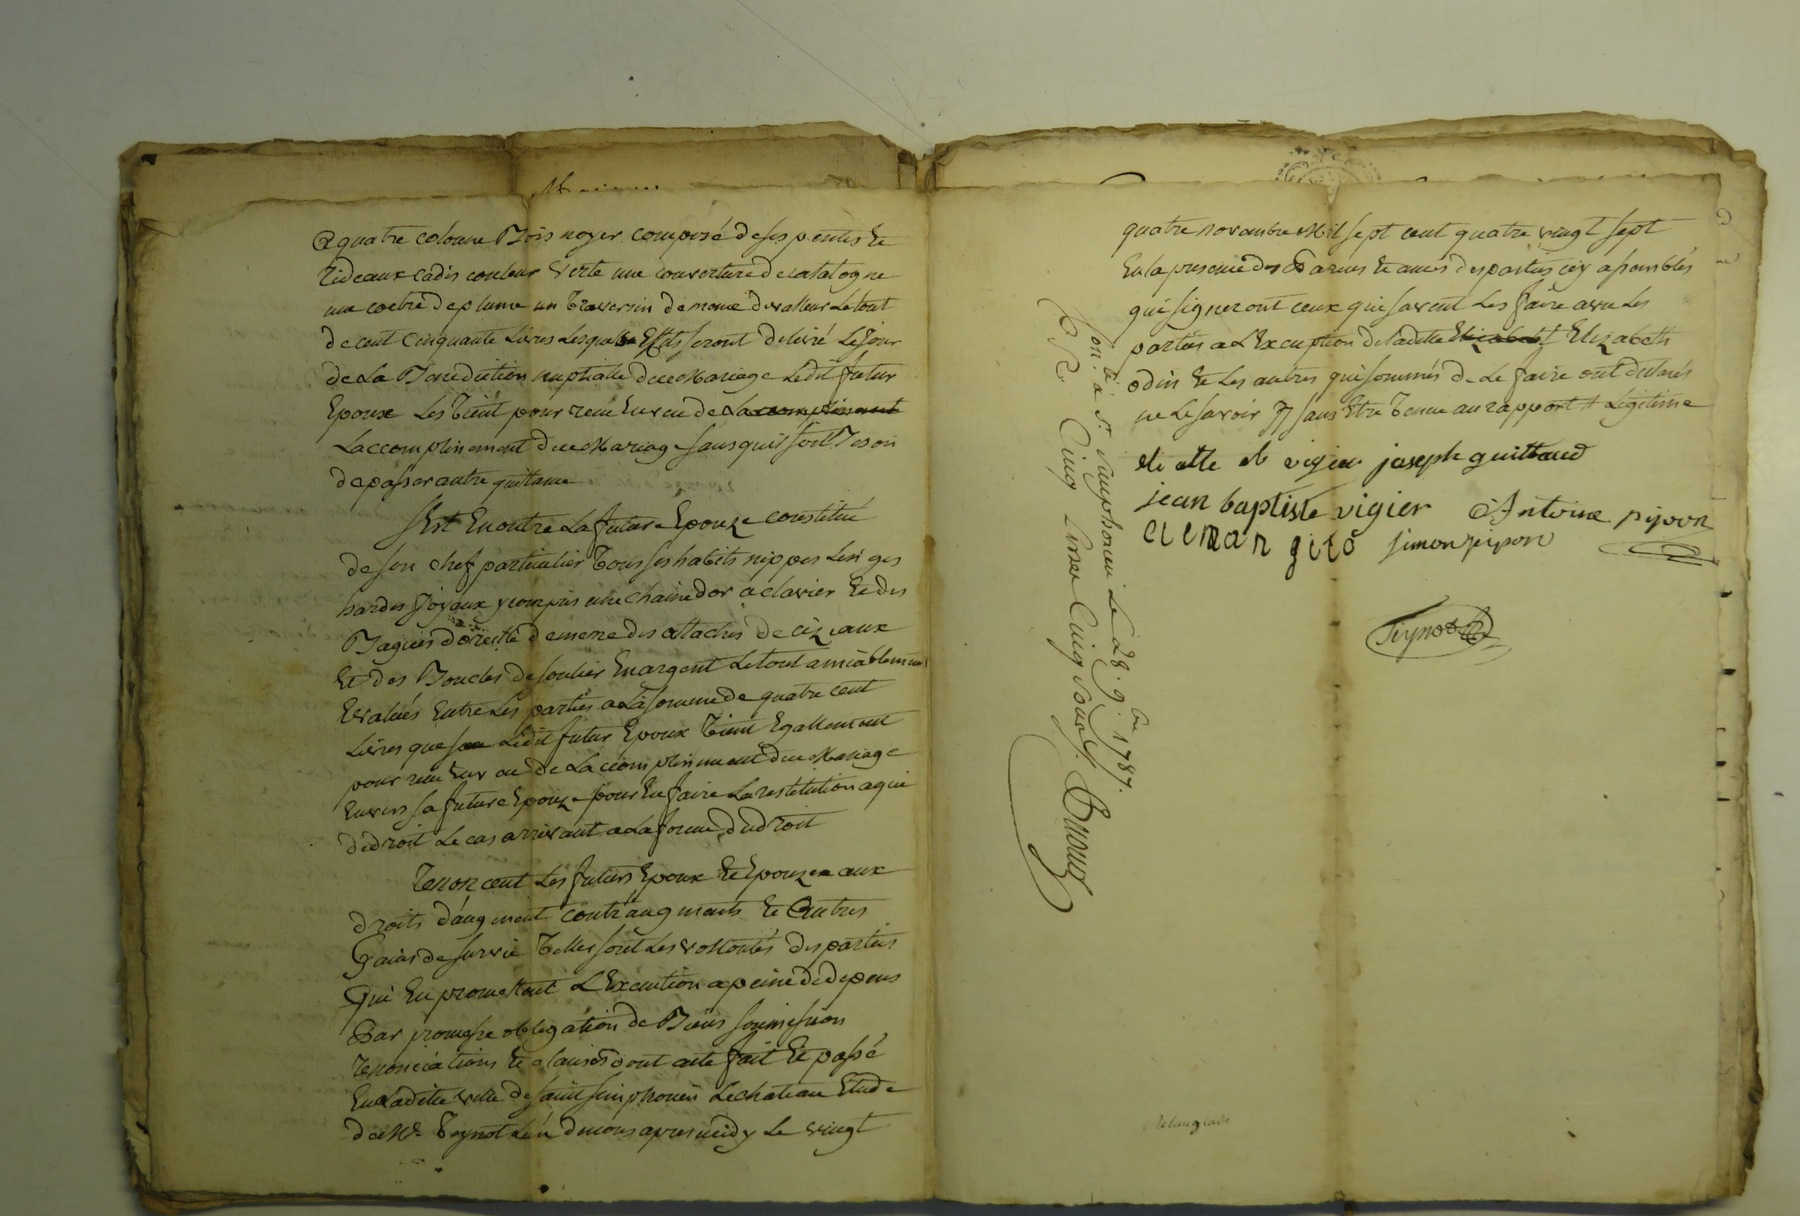 a quatre colonne Bois noyer composé de ses pentes et
rideaux cadis couleur verte une couverture de catalogne
une coetre de plume un traversin de meme de valleur le tout
de cent cinquante Livres lesquels Effets seront delivré le jour
de la Benediction nuptialle du mariage Ledit futur
Epoux Les tient pour reçu En veu de Lacomplinement
Laccomplinement du mariage sans quil soit Besoin
de passer autre quittance
Est En outre La future Epouze constitué
de son chef particulier tous ses habits nippes Linges
hardes Joyaux y compris une chaine d'or a clavier et des
Bagues d'oreille de meme des attaches de cizeaux
Et des Boucles de soulier En argent Le tout amiablement
Evalués Entre Les parties a La somme de quatre cent
Livres que Ledit futur Epoux tient Egallement
pour reçu En veu de Lacomplinement du mariage
Envers sa future Epouze pour En faire La restitution a qui
de droit Le cas arrivant a La forme du droit
renoncent Les futurs Epoux et Epouze aux
droits d'augment contr'augments et autres
Gains de survie telles sont Les vollontés des parties
Qui En promettent L'Execution a peine de depens
Par promesse obligation de Biens soumission
renonciations et clauses dont acte fait Et passé
En Ladite ville de saint simphorien Lechateau Etude
de Me. Peynot L'un de nous apres midy Le vingt
quatre novembre Mil sept cent quatre vingt sept
En la presence des Parens et amis des parties icy assemblés
qui signeront ceux qui savent Les faire avec Les
parties a L'Exception de Ladite Elizabet Elizabeth
odin et Les autres qui sommés de Le faire ont declarés
ne Le savoir sans Etre tenue au rapport Legitime
vigier joseph guittaud
jean baptiste vigier Antoine pipon
simon pipon
Peynot
Con lé a St. Simphorien Le 28. 9.bre 1787.
R. Cinq Livres Cinq sous.